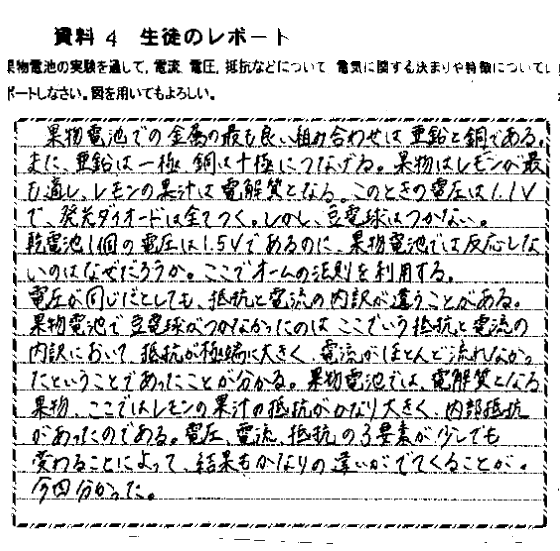 資料4 生徒のレポート
果物電池の実験を通して,電流,電圧,抵抗などについて 電気に関する決まりや特徴についてレ
ポートしなさい。図を用いてもよろしい。
果物電池での金属の最も良い組み合わせは亜鉛と銅である。
また、亜鉛は一極、銅は十極につなげる。果物はレモンが最
も適し、レモンの果汁は電解質となる。このときの電圧は1.1V
で、発光ダイオードは全てつく。しかし、豆電球はつかない。
乾電池1個の電圧は1.5Vであるのに、果物電池では反応しな
いのはなぜだろうか。ここでオームの法則を利用する。
電圧が同じだとしても、抵抗と電流の内訳が違うことがある。
果物電池で豆電球がつかなかったのは ここでいう抵抗と電流の
内訳において 抵抗が極端に大きく 電流がほとんど流れなかっ
たということであったことが分かる。果物電池では、電解質となる
果物、ここではレモンの果汁の抵抗がかなり大きく、内部抵抗
があったのである。電圧、電流、抵抗の3要素が少しでも
変わることによって、結果もかなりの違いがでてくることが。
今回分かった。